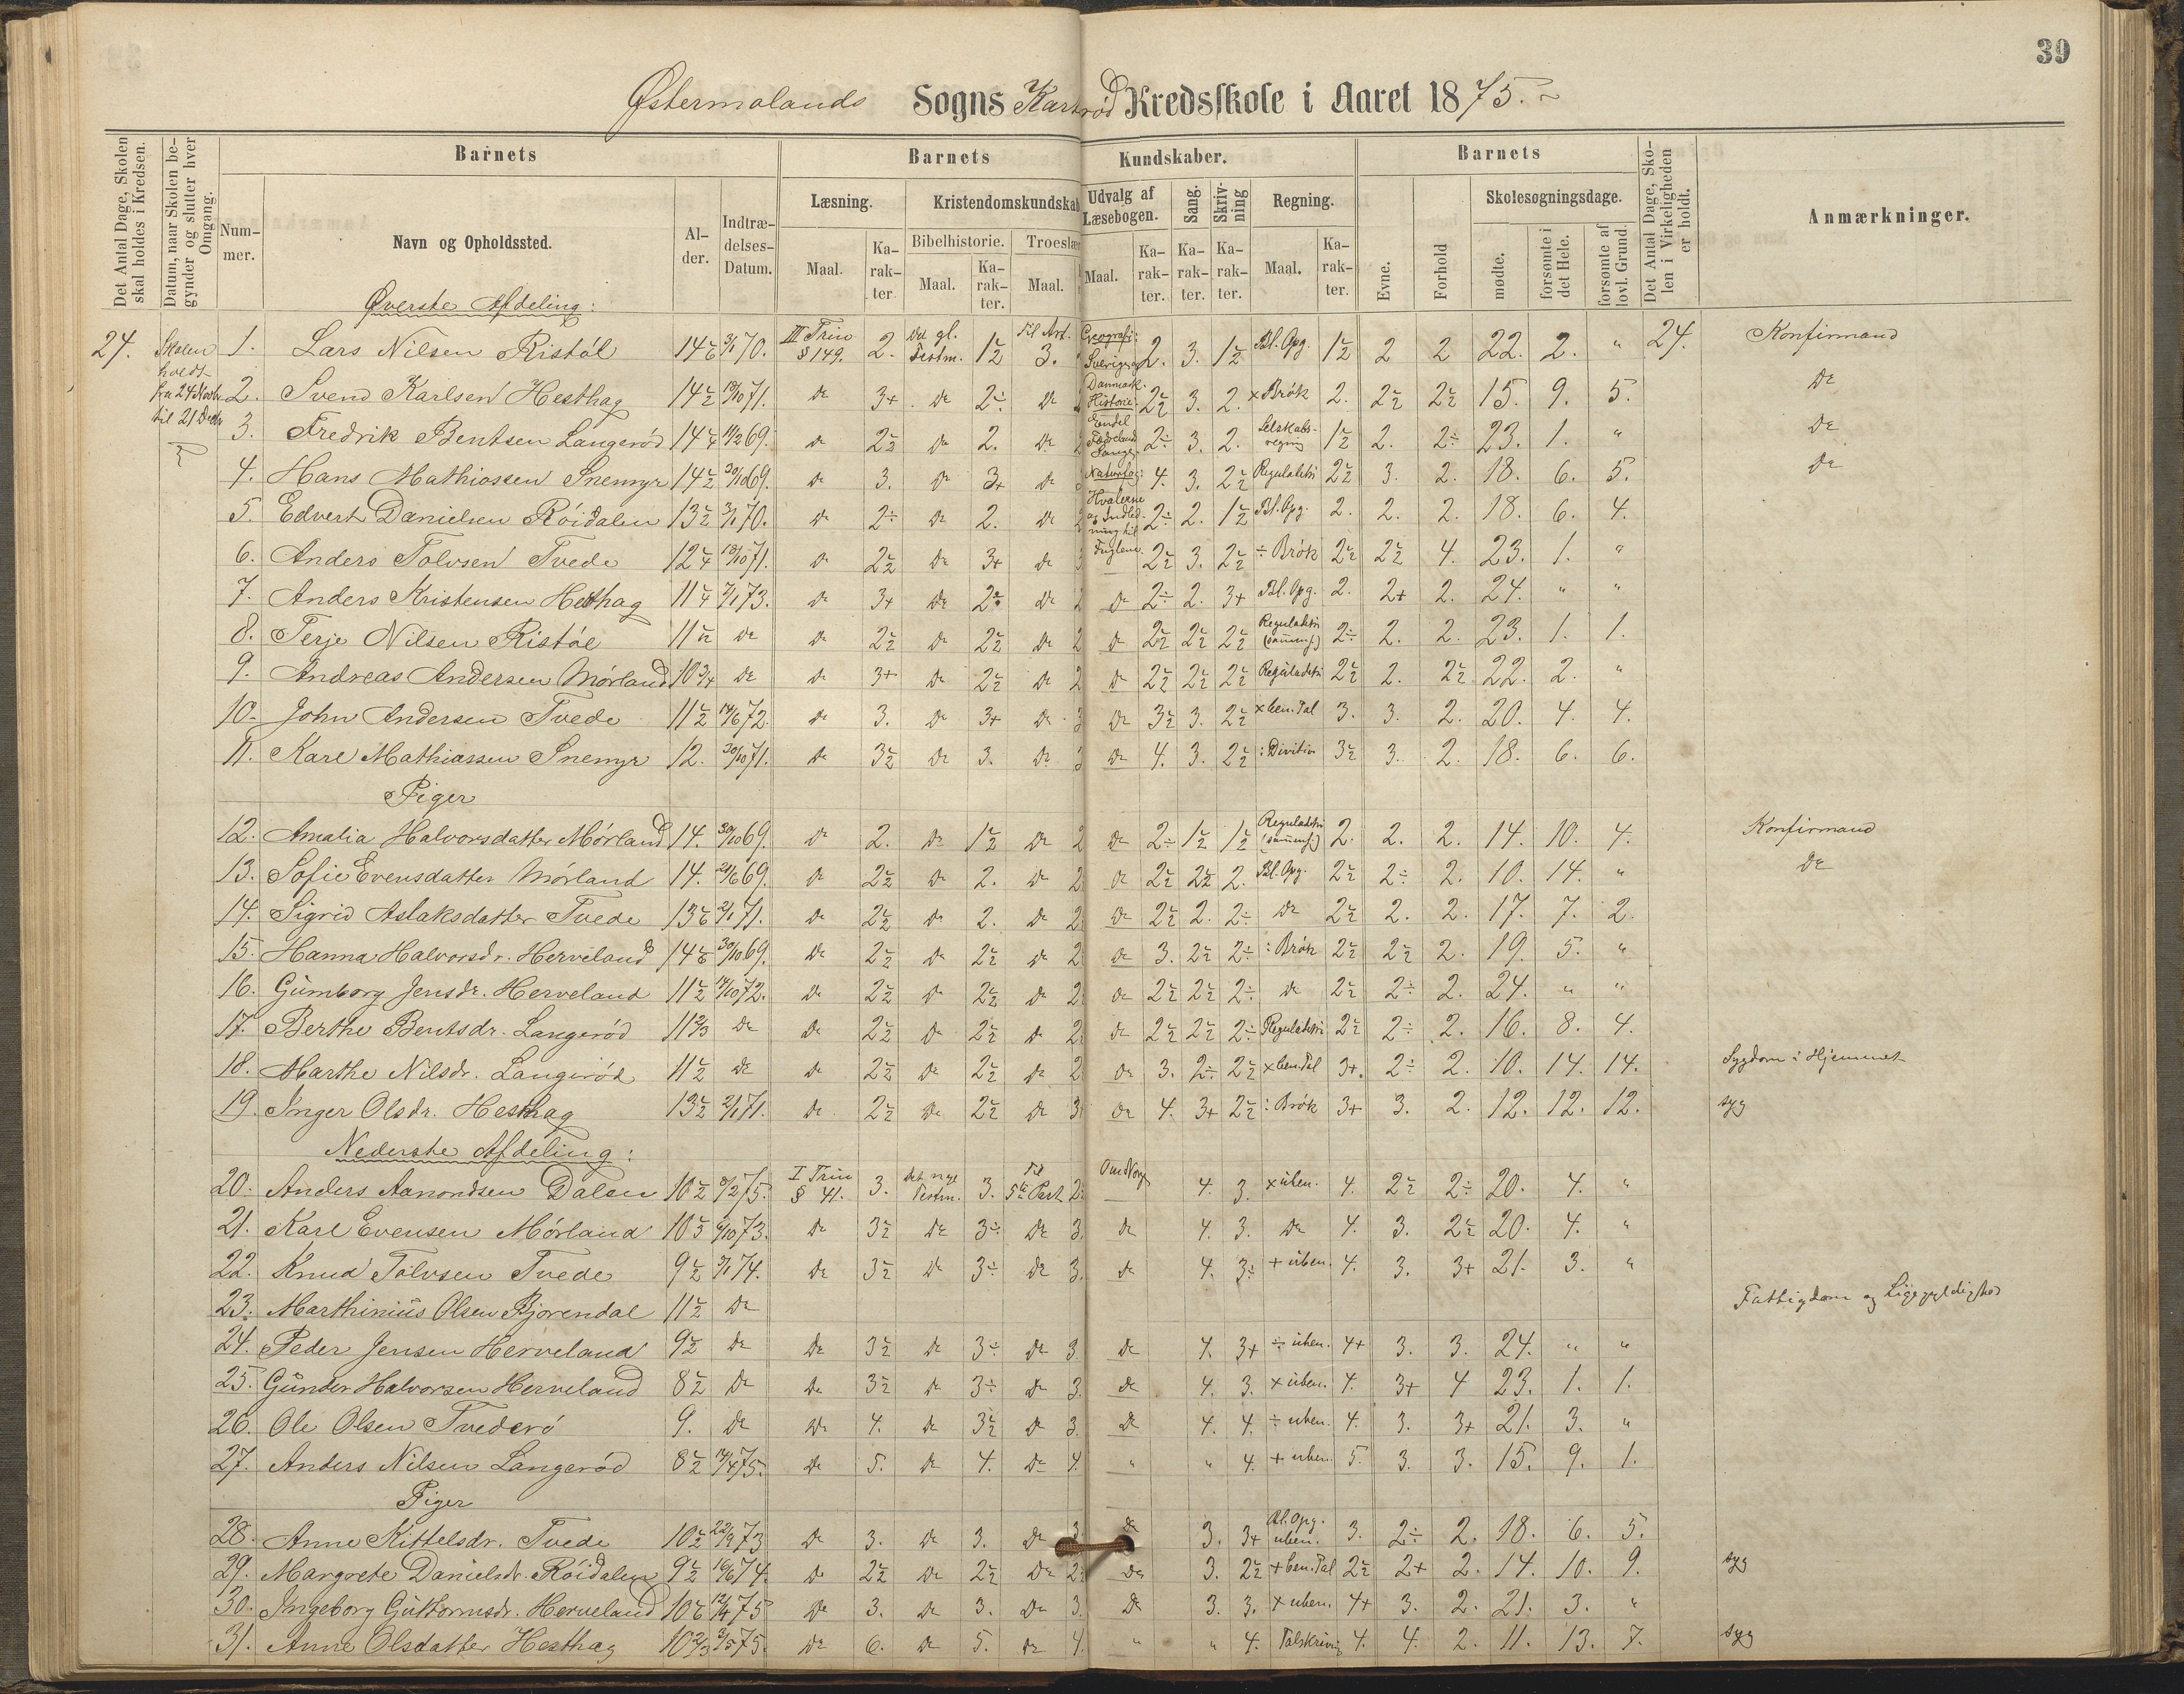 39
Østermolands Sogns Kartrød Kredsskole i Aaret 1875.
Det Antal Dage, Skolen skal holdes i Kredsen.
Datum, naar Skolen begynder og slutter hver Omgang.
Barnets
Nummer.
Navn og Opholdssted.
Alder.
Indtrædelses-Datum.
Barnets Kundskaber.
Læsning. Maal. Karakter.
Kristendomskundskab
Bibelhistorie. Maal. Karakter.
Troeslær Maal.
Udvalg af Læsebogen. Maal. Karakter.
Sang. Karakter.
Skrivning Karakter.
Regning. Maal. Karakter.
Barnets
Evne.
Forhold
Skolesøgningsdage.
mødte.
forsømte i det Hele.
forsømte af lovl. Grund.
Det Antal Dage, Skolen i Virkeligheden er holdt.
Anmærkninger.
Øverste Afdeling:
24. Skolen holdt fra 24 Novbr til 21 Decbr
1. Lars Nilsen Ristøl 3/1 70. III Trin § 149. 2. Det gl. Testm. 1½ Til Art. 3. 2. 3. 1½ Bl. Opg. 1½ 2 2 22. 2. " 24. Konfirmand
Geografi: Sverige og Danmark. Historie: Endel Fædreland Sange. Naturfag: Hvalerne og Indledning til Fuglene.
2. Svend Karlsen Hesthag 14½ 10/10 71. Do 3+ Do 2÷ Do 2½ 3. 2. × Brøk 2. 2½ 2½ 15. 9. 5. Do
3. Fredrik Bentsen Langerød 14¼ 69. Do 2½ Do 2. Do 2÷ 3. 2. Selskabsregning 1½ 2. 2÷ 23. 1. " Do
4. Hans Mathiassen Snemyr 14½ 30/10 69. Do 3. Do 3+ Do 4. 3. 2½ Reguladetri 2½ 3. 2. 18. 6. 5. Do
5. Edvert Danielsen Røidalen 13½ 3/1 70. Do 2÷ Do 2. Do 2÷ 2. 1½ Bl. Opg. 2. 2. 2. 18. 6. 4.
6. Anders Tolvsen Tvede 12¼ 10/10 71. Do 2½ Do 3+ Do 2½ 3. 2½ ÷ Brøk 2½ 2½ 4. 23. 1. "
7. Anders Kristensen Hesthag 11¼ 7/1 73. Do 3+ Do 2÷ Do 2 Do 2÷ 2. 3+ Bl. Opg. 2. 2+ 2. 24. " "
8. Terje Nilsen Ristøl Do Do 2½ Do 2½ Do 2 Do 2½ 2½ 2½ Reguladetri (sammens.) 2÷ 2. 2. 23. 1. 1.
9. Andreas Andersen Mørland 10¾ Do Do 3+ Do 2½ Do 2 Do 2½ 2½ 2½ Reguladetri 2½ 2. 2½ 22. 2. "
10. John Andersen Tvede 11½ 14/6 72. Do 3. Do 3+ Do 3 Do 3½ 3. 2½ × ben. Tal 3. 3. 2. 20. 4. 4.
11. Karl Mathiassen Snemyr 12. 30/10 71. Do 3½ Do 3. Do 3 Do 4. 3. 2½ : Divition 3½ 3. 2. 18. 6. 6.
Piger
12. Amalia Halvorsdatter Mørland 14. 30/10 69. Do 2. Do 1½ Do 2 Do 2÷ 1½ 1½ Reguladetri (sammens.) 2. 2. 2. 14. 10. 4. Konfirmand
13. Sofie Evensdatter Mørland 14. 69. Do 2½ Do 2. Do 2 Do 2½ 2½ 2. Bl. Opg. 2½ 2÷ 2. 10. 14. " Do
14. Sigrid Aslaksdatter Tvede 2/1 71. Do 2½ Do 2. Do 2 Do 2½ 2. 2÷ Do 2½ 2. 2. 17. 7. 2.
15. Hanna Halvorsdr. Herveland 30/10 69. Do 2½ Do 2½ Do 2 Do 3. 2½ 2÷ : Brøk 2½ 2½ 2. 19. 5. "
16. Gumborg Jensdr. Herveland 11½ 14/10 72. Do 2½ Do 2½ Do 2 Do 2½ 2½ 2÷ Do 2½ 2÷ 2. 24. " "
17. Berthe Bentsdr. Langerød 11⅔ Do Do 2½ Do 2½ Do 2 Do 2½ 2½ 2÷ Reguladetri 2½ 2÷ 2. 16. 8. 4.
18. Marthe Nilsdr. Langerød 11½ Do Do 2½ Do 2½ Do 2 Do 3. 2÷ 2½ × ben. Tal 3+. 2÷ 2. 10. 14. 14. Sygdom i Hjemmet
19. Inger Olsdr. Hesthag 13½ 2/1 71. Do 2½ Do 2½ Do 3 Do 4. 3+ 2½ : Brøk 3+ 3. 2. 12. 12. 12. syg
Nederste Afdeling:
20. Anders Aanondsen Dalen 10½ 75. I Trin § 41. 3. Det nye Testm. 3. Til 5te Part 2 Om Norge 4. 3. × uben. 4. 2½ 2÷ 20. 4. "
21. Karl Evensen Mørland 73. Do 3½ Do 3÷ Do 3. Do 4. 3. Do 4. 3. 2½ 20. 4. "
22. Knud Tolvsen Tvede 9½ 7/1 74. Do 3½ Do 3÷ Do 3. Do 4. 3÷ + uben. 4. 3. 3+ 21. 3. "
23. Marthinius Olsen Bjorendal 11½ Do Fattigdom og Ligegyldighed
24. Peder Jensen Herveland 9½ Do Do 3½ Do 3÷ Do 3. Do 4. 3+ ÷ uben. 4+ 3. 3. 24. " "
25. Gunder Halvorsen Herveland 8½ Do Do 3½ Do 3÷ Do 3. Do 4. 3. × uben. 4. 3+ 4 23. 1. 1.
26. Ole Olsen Tvederø 9. Do Do 4. Do 3½ Do 3. Do 4. 4. ÷ uben. 4. 3. 3+ 21. 3. "
27. Anders Nilsen Langerød 8½ 75. Do 5. Do 4. Do 4. " " 4. + uben. 5. 3. 3. 15. 9. 1.
Piger
28. Anne Kittelsdr. Tvede 10½ 22/9 73 Do 3. Do 3. Do 3. Do 3. 3+ Bl. Opg. uben. 3. 2÷ 2. 18. 6. 5.
29. Margrete Danielsdr. Røidalen 9½ 16/6 74. Do 2½ Do 2½ Do 2 Do 3. 2½ + ben. Tal 2½ 2+ 2. 14. 10. 9. syg
30. Ingeborg Guttormsdr. Herveland 12/4 75 Do 3. Do 3. Do 3. Do 3. 3. × uben. 4+ 3. 2. 21. 3. "
31. Anne Olsdatter Hesthag 10⅔ 3/5 75. Do 6. Do 5. Do 4. " " 4. Talskrivning 4. 4. 2. 11. 13. 7. syg